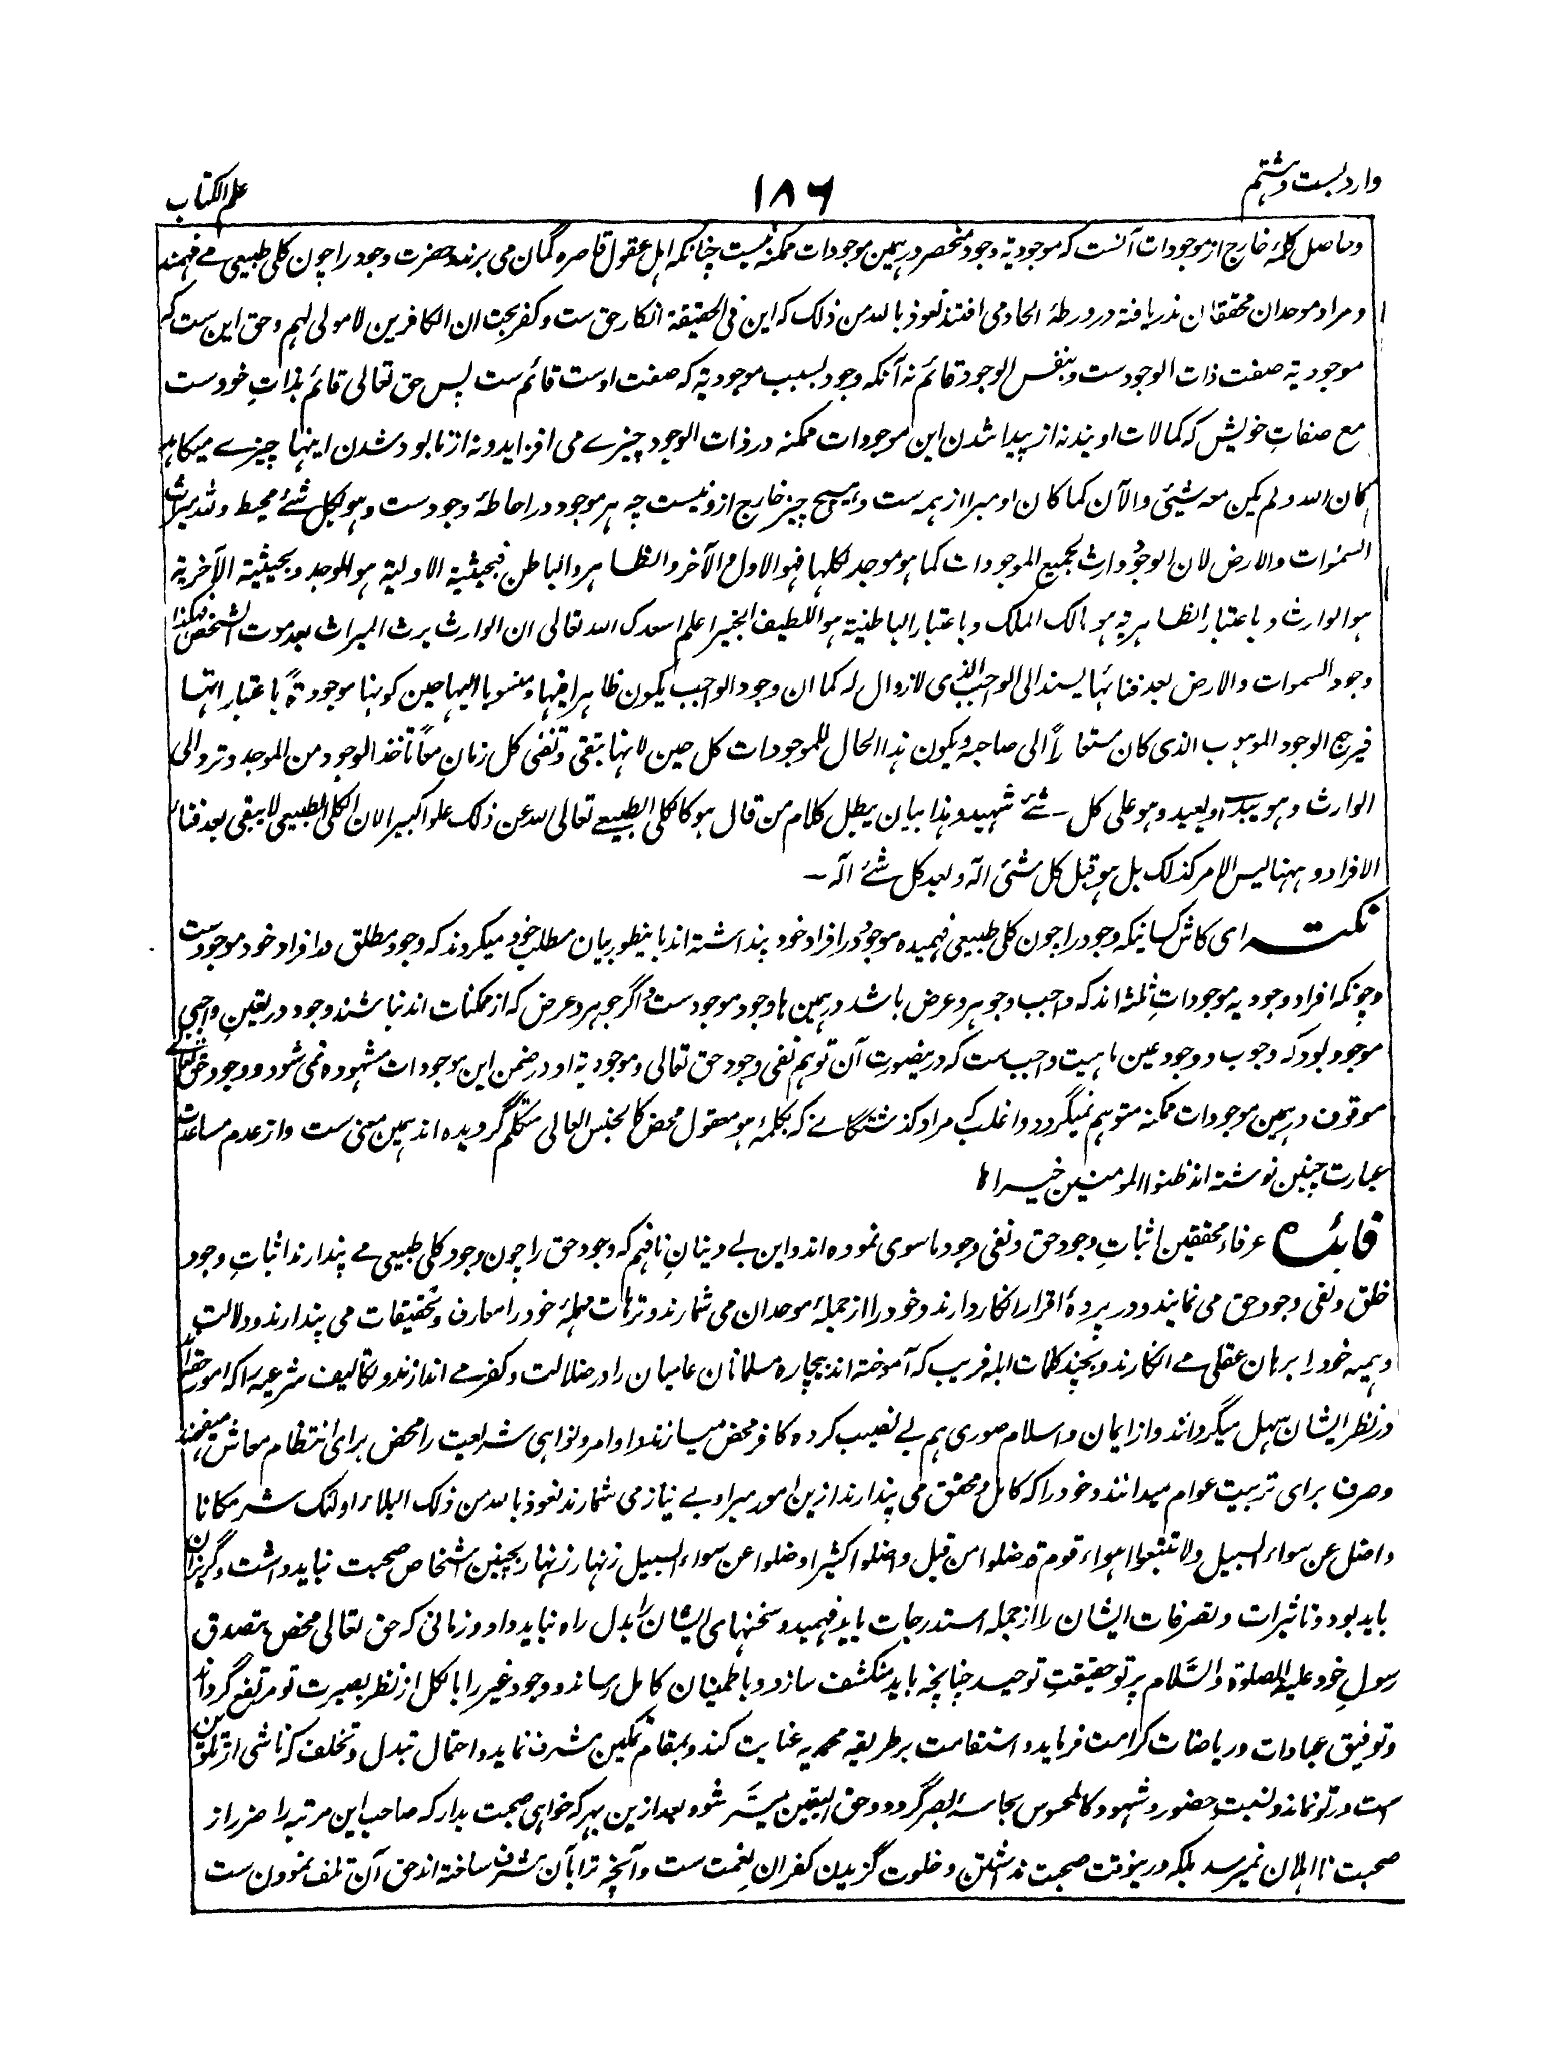 وارد بست و ہشتم
۱۸۶
علم الکتاب
وحاصل کلمۂ خارج از موجودات آنست کہ موجودیۃ وجود منحصر در ہمین موجودات ممکنہ نیست چنانکہ اہل عقول قاصرہ گمان می برند و حضرت وجود را چون کلی طبیعی مے فہمند
و مراد موحدان محققان ندریافتہ در ورطۂ الحاد می افتند نعوذ باللہ من ذلک کہ این فی الحقیقۃ انکار حق ست و کفر بحت ان الکافرین لا مولی لہم و حق این ست کہ
موجودیۃ صفت ذات الوجود ست و بنفس الوجود قائم نہ آنکہ وجود بسبب موجودیۃ کہ صفت اوست قائم ست پس حق تعالی قائم بذاتِ خودست
مع صفاتِ خویش کہ کمالات اویند نہ از پیدا شدن این موجودات ممکنہ در ذات الوجود چیزے می افزاید و نہ از نابود شدن اینہا چیزے میکاہد
کان اللہ ولم یکن معہ شیئی والآن کما کان او مبرا از ہمہ ست و ہیچ چیز خارج ازو نیست چہ ہر موجود در احاطۂ وجود ست وہو بکل شئے محیط و للہ میراث
السمٰوات والارض لان الوجود وارث لجمیع الموجودات کما ہو موجد لکلہا فہو الاول و الآخر و الظاہر والباطن فبحیثیۃ الاولیۃ ہو الموجد و بحیثیۃ الآخریۃ
ہو الوارث و باعتبار الظاہریۃ ہو مالک الملک و باعتبار الباطنیۃ ہو اللطیف الخبیر اعلم اسعدک اللہ تعالی ان الوارث یرث المیراث بعد موت الشخص ہکذا
وجود السموات والارض بعد فنائہا یسند الی الواجب الذی لا زوال لہ کما ان وجود الواجب یکون ظاہرا فیہا و منسوبا الیہا حین کونہا موجودۃً باعتبار انتہا
فیرجع الوجود الموہوب الذی کان مستعاراً الی صاحبہ و یکون ہذا الحال للموجودات کل حین لانہا تبقی و تفنی کل زمان معاً تاخذ الوجود من الموجد و ترد الی
الوارث و ہو یبدء و یعید و ہو علی کل شئے شہید و ہذا بیان یبطل کلام من قال ہو کالکلی الطبیعے تعالی اللہ عن ذلک علوا کبیرا لان الکلی الطبیعی لا یبقی بعد فناء
الافراد و ہہنا لیس الامر کذلک بل ہو قبل کل شئی الہ و بعد کل شئے الہ —
نکتہ ای کاش کسانیکہ وجود را چون کلی طبیعی فہمیدہ موجود در افراد خود پنداشتہ اند باینطور بیان مطلب خود میکردند کہ وجود مطلق در افراد خود موجودست
وچونکہ افراد وجودیہ موجوداتِ ثلثہ اند کہ واجب و جوہر و عرض باشد در ہمین ہا وجود موجود ست و اگر جوہر و عرض کہ از ممکنات اند نباشند وجود در یقینِ واجبی
موجود بود کہ وجوب و وجود عین ماہیت واجب ست کہ درینصورت آن توہم نفی وجود حق تعالی و موجودیۃ او در ضمن این موجودات مشہودہ نمی شود و وجود حق تعالے
موقوف در ہمین موجودات ممکنہ متوہم نمیگردد و اغلب کہ مراد گذشتگانے کہ بکلمۂ ہو معقول محض کالجنس العالی متکلم گردیدہ اند ہمین معنی ست و از عدم مساعدت
عبارت چنین نوشتہ اند ظنوا المومنین خیرا ۱۲
فائدہ عرفاء محققین اثباتِ وجود حق و نفی وجود ماسوی نمودہ اند و این بے دینانِ نافہم کہ وجود حق را چون وجود کلی طبیعی مے پندارند اثباتِ وجود
خلق و نفی وجود حق می نمایند و در پردۂ اقرار انکار دارند و خود را از جملۂ موحدان می شمارند و ترہات مہملۂ خود را معارف و تحقیقات می پندارند و دلالتِ
وہمیہ خود را برہان عقلی مے انگارند و بچند کلمات ابلہ فریب کہ آموختہ اند بیچارہ مسلمانان عامیان را در ضلالت و کفر مے اندازند و تکالیف شرعیہ را کہ امور حقہ اند
در نظر ایشان سہل میگردانند و از ایمان و اسلام صوری ہم بے نصیب کردہ کافر محض میسازند و اوامر و نواہی شریعت را محض برای انتظام معاش میفہمند
و صرف برای تربیت عوام میدانند و خود را کہ کامل و محقق می پندارند ازین امور مبرا و بے نیاز می شمارند نعوذ باللہ من ذلک البلاء اولئک شر مکانا
و اضل عن سواء السبیل ولا تتبعوا اہواء قوم قد ضلوا من قبل و اضلوا کثیرا و ضلوا عن سواء السبیل زنہار زنہار بچنین اشخاص صحبت نباید داشت و گریزان
باید بود و تاثیرات و تصرفات ایشان را از جملہ استدراجات باید فہمید و سخنہای ایشان را بدل راہ نباید داد و زمانی کہ حق تعالی محض بتصدق
رسولِ خود علیہ الصلوۃ والسّلام بر تو حقیقتِ توحید چنانچہ باید منکشف سازد و باطمینان کامل رساند و وجود غیر را بالکل از نظر بصیرت تو مرتفع گرداند
و توفیق عبادات و ریاضات کرامت فرماید و استقامت بر طریقہ محمدیہ عنایت کند و بمقام تمکین مشرف نماید و احتمال تبدل و تخلف کہ ناشی از تلون
ست در تو نماند و نسبتِ حضور و شہود کالمحسوس بحاسۂ البصر گردد و حق الیقین میسّر شود بعد ازین بہر کہ خواہی صحبت بدار کہ صاحب این مرتبہ را ضرر از
صحبت نااہلان نمیرسد بلکہ درینوقت صحبت نداشتن و خلوت گزیدن کفران نعمت ست و آنچہ ترا بآن مشرف ساختہ اند حق آن تلف نمودن ست